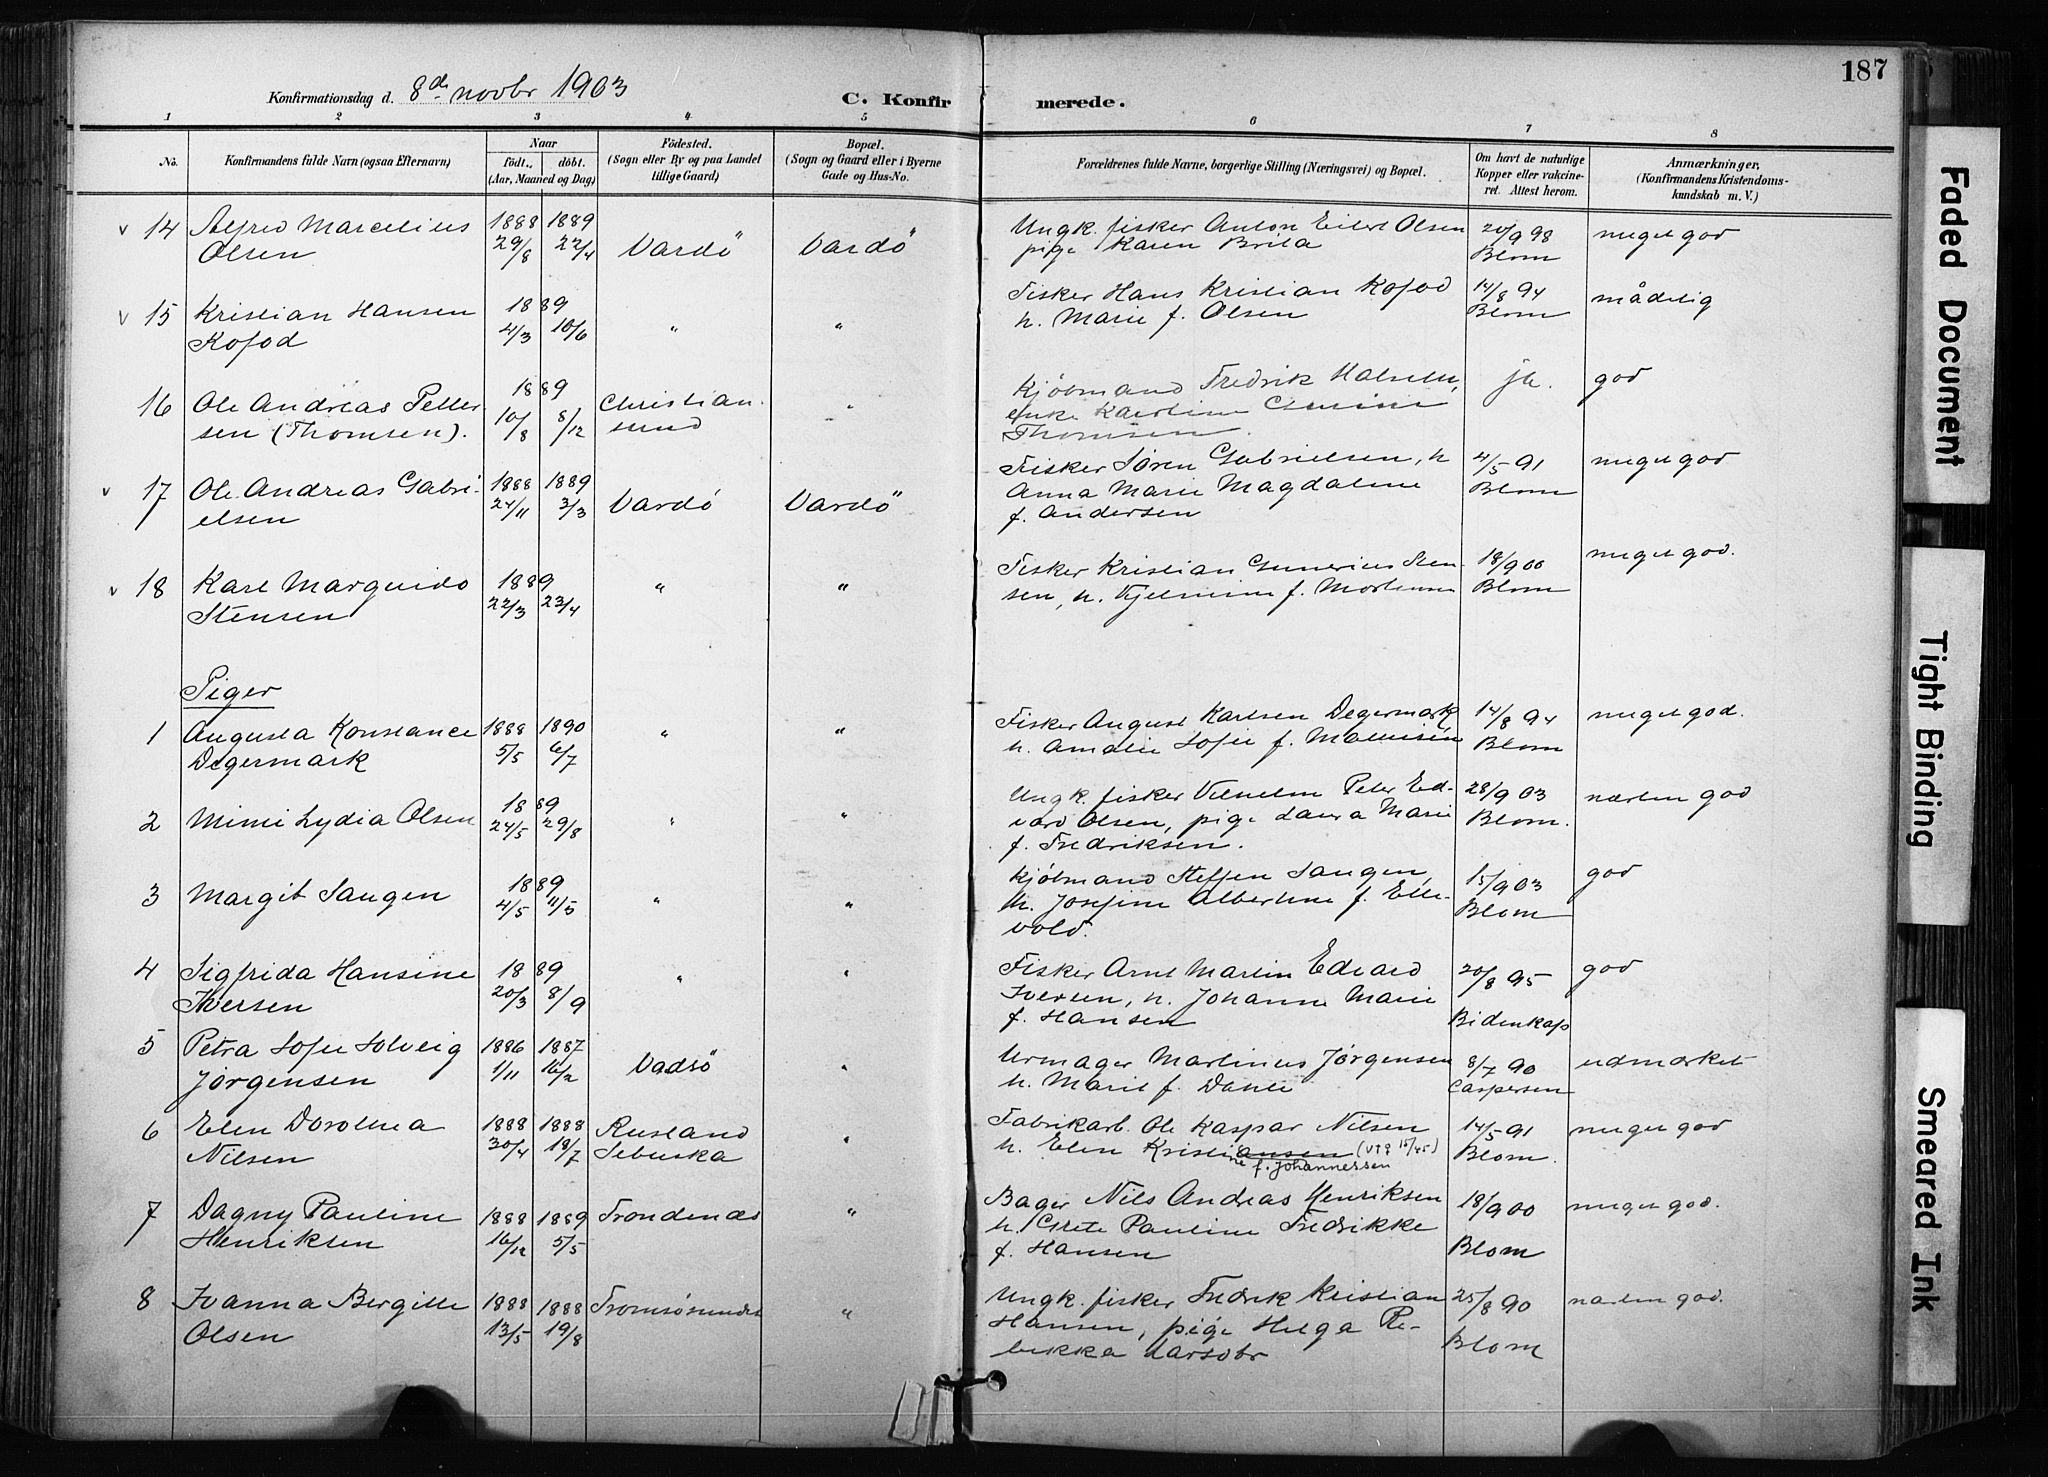 187
Konfirmationsdag d. 8de novbr 1903
C. Konfirmerede.
1 2 3 4 5 6 7 8
No.
Konfirmandens fulde Navn (ogsaa Efternavn)
Naar
født., døbt.
(Aar, Maaned og Dag)
Fødested.
(Sogn eller By og paa Landet
tillige Gaard)
Bopæl.
(Sogn og Gaard eller i Byerne
Gade og Hus-No.
Forældrenes fulde Navne, borgerlige Stilling (Næringsvei) og Bopæl.
Om havt de naturlige
Kopper eller vakcine-
ret. Attest herom.
Anmærkninger,
(Konfirmandens Kristendoms-
kundskab m. V.)
v 14 Alfred Marcelius 1888 1889 Ungk. fisker Anton Eilert Olsen 20/9 98 meget god
Olsen 29/8 22/4 Vardö Vardö pige Karen Brita Blom
v 15 Kristian Hansen 1889 Fisker Hans Kristian Kofod 14/8 94 mådelig
Kofod 4/3 10/6 " " h. Marie f. Olsen Blom
16 Ole Andreas Petter 1889 Christian- Kjøbmand Fredrik ja. god
sen (Thomsen). 10/8 8/12 sund " enke
Thomsen.
v 17 Ole Andreas Gabri- 1888 1889 Fisker Søren Gabrielsen, h 4/5 91 meget god
elsen 24/11 3/3 Vardö Vardö Anna Marie Magdalene Blom
f. Andersen
v 18 Karl Marquido 1889 " " Fisker Kristian Gunerius Sten- 18/9 00 meget god.
Stensen 22/3 23/4 sen, h. Hjelmine f. Mortensen Blom
Piger
1 Augusta Konstance 1888 1890 " " Fisker August Karlsen Degermark 14/8 94 meget god.
Degermark 5/5 6/7 h. Amalie Sofie f. Blom
2 Mimi Lydia Olsen 1889 " " Ungk. fisker Vilhelm Peter Ed- 28/9 03 næsten god
24/5 29/8 vard Olsen, pige Laura Marie Blom.
f. Fredriksen.
3 Margit Saugen 1889 " " Kjøbmand Steffen Saugen, 15/9 03 god
4/5 11/5 h. Josefine Albertine f. Elle- Blom
vold.
4 Sigfrida Hansine 1889 " " Fisker Arnt Martin Edvard 20/8 95 god
Iversen 20/3 8/9 Iversen, h. Johanne Marie
f. Hansen Bidenkap
5 Petra Sofie Solveig 1886 1887 Vadsö " Urmager Martinus Jørgensen 8/7 90 udmærket
Jørgensen 1/11 16/2 h. Marie f. Dahle Caspersen
6 Elen Dorothea 1888 1888 Rusland " Fabrikarb. Ole Kaspar Nilsen 14/5 91 meget god
Nilsen 30/4 18/7 Sebuska h. Elen Kristiansen Blom.
ne f. Johannessen
7 Dagny Pauline 1888 1889 Trondenæs " Bager Nils Andreas Henriksen 18/9 00 meget god.
Henriksen 16/12 5/5 h. Grete Pauline Fredrikke
f. Hansen Blom
8 Ivanna Bergitte 1888 1888 Tromsøsundet " Ungk. fisker Fredrik Kristian 25/8 90 næsten god.
Olsen 13/5 19/8 Hansen, pige Helga Re-
bekka Larsdtr Blom
Faded Document
Tight Binding
Smeared Ink